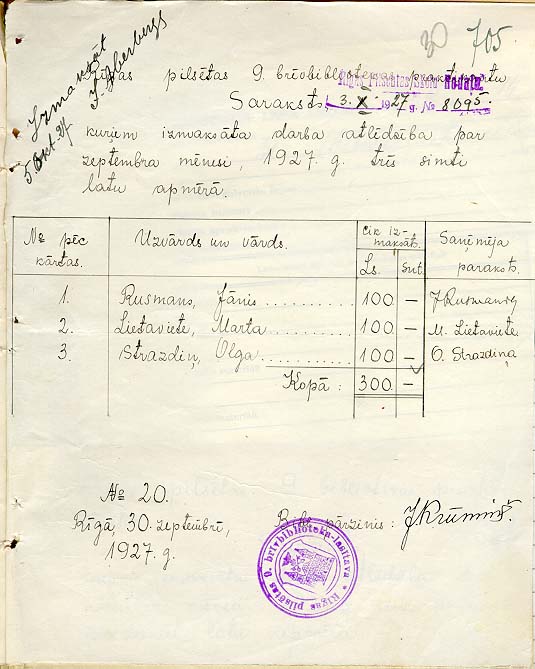 705
Izmaksāt
5. Okt. 27
Rīgas pilsētas 9. brīvbibliotekas praktikantu
Saraksts,
3. X 1927 g. № 8095.
kuŗiem izmaksāta darba atlīdzība par
septembra mēnesi, 1927. g. trīs simti
latu apmērā.
№ pēc kārtas. Uzvārds un vārds. Cik izmaksāts. Saņēmēja paraksts.
Ls. Sut.
1. Rusmans, Jānis 100 — J Rusmans
2. Lietaviete, Marta 100 — M. Lietaviete
3. Strazdiņ, Olga 100 — O. Strazdiņa
Kopā: 300 —
№ 20.
Rīgā, 30. septembrī, Bibl. pārzinis: J Krūmiņš.
1927. g.
Rīgas pilsētas 9. brīvbiblioteka-lasītava